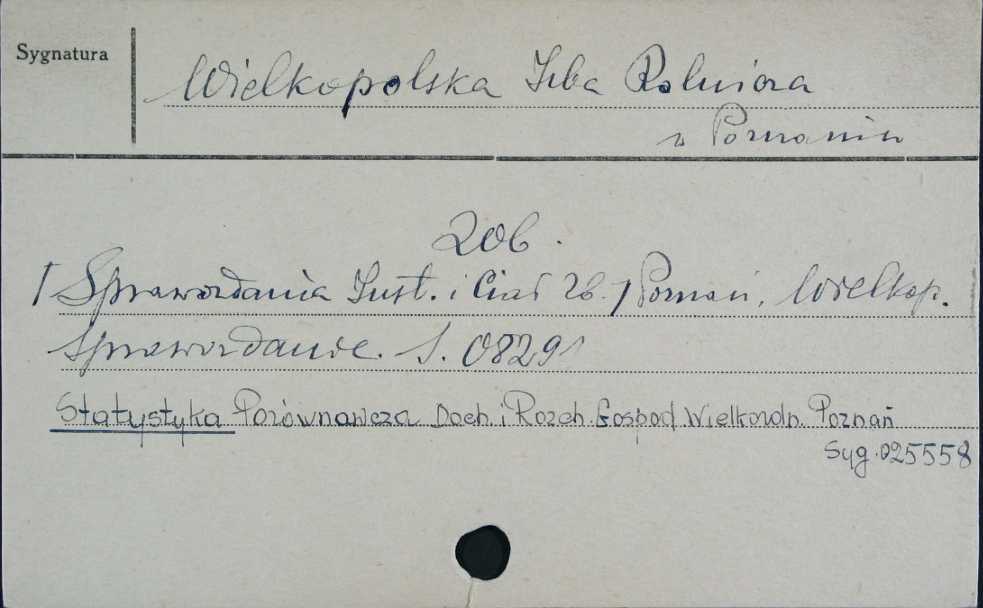 Sygnatura
Wielkopolska Izba Rolnicza
w Poznaniu
Zob.
/ Sprawozdania Inst. i Ciał Zb. / Poznań, Wielkop.
Sprawozdanie. S. 08291
Statystyka Porównawcza Doch. i Rozch. Gospod. Poznań
Syg. 025558